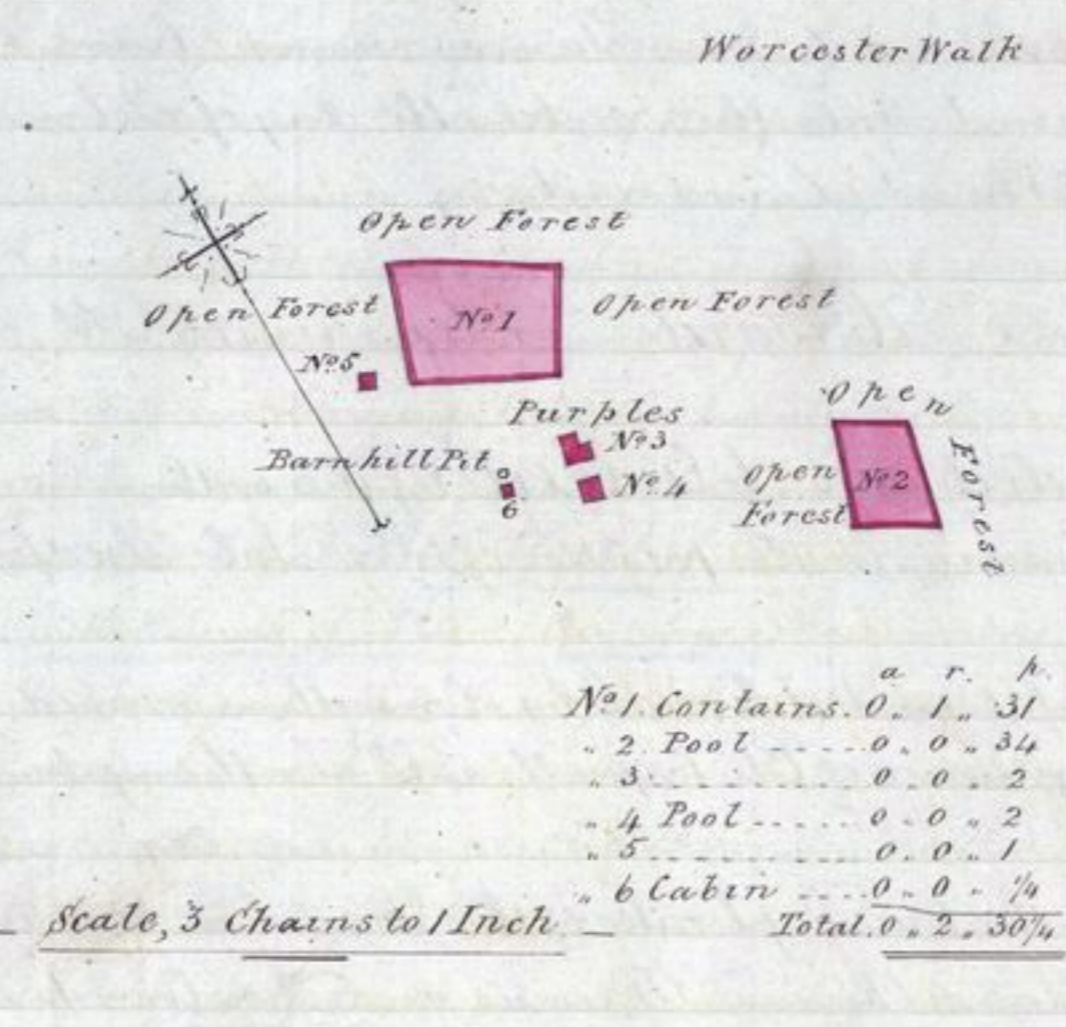 Worcester Walk
Open Forest
Open Forest
No. 1
Open Forest
No. 5
Purples
No. 3
Barnhill Pit
No. 4
6
Open Forest
Open
Forest
No. 2
a r. p.
No. 1. Contains. 0 „ 1 „ 31
„ 2. Pool ----- 0 „ 0 „ 34
„ 3 ---------- 0 „ 0 „ 2
„ 4 Pool ----- 0 „ 0 „ 2
„ 5 ---------- 0 „ 0 „ 1
„ 6 Cabin ---- 0 „ 0 „ 1/4
Total. 0 „ 2 „ 30 1/4
Scale, 3 Chains to 1 Inch